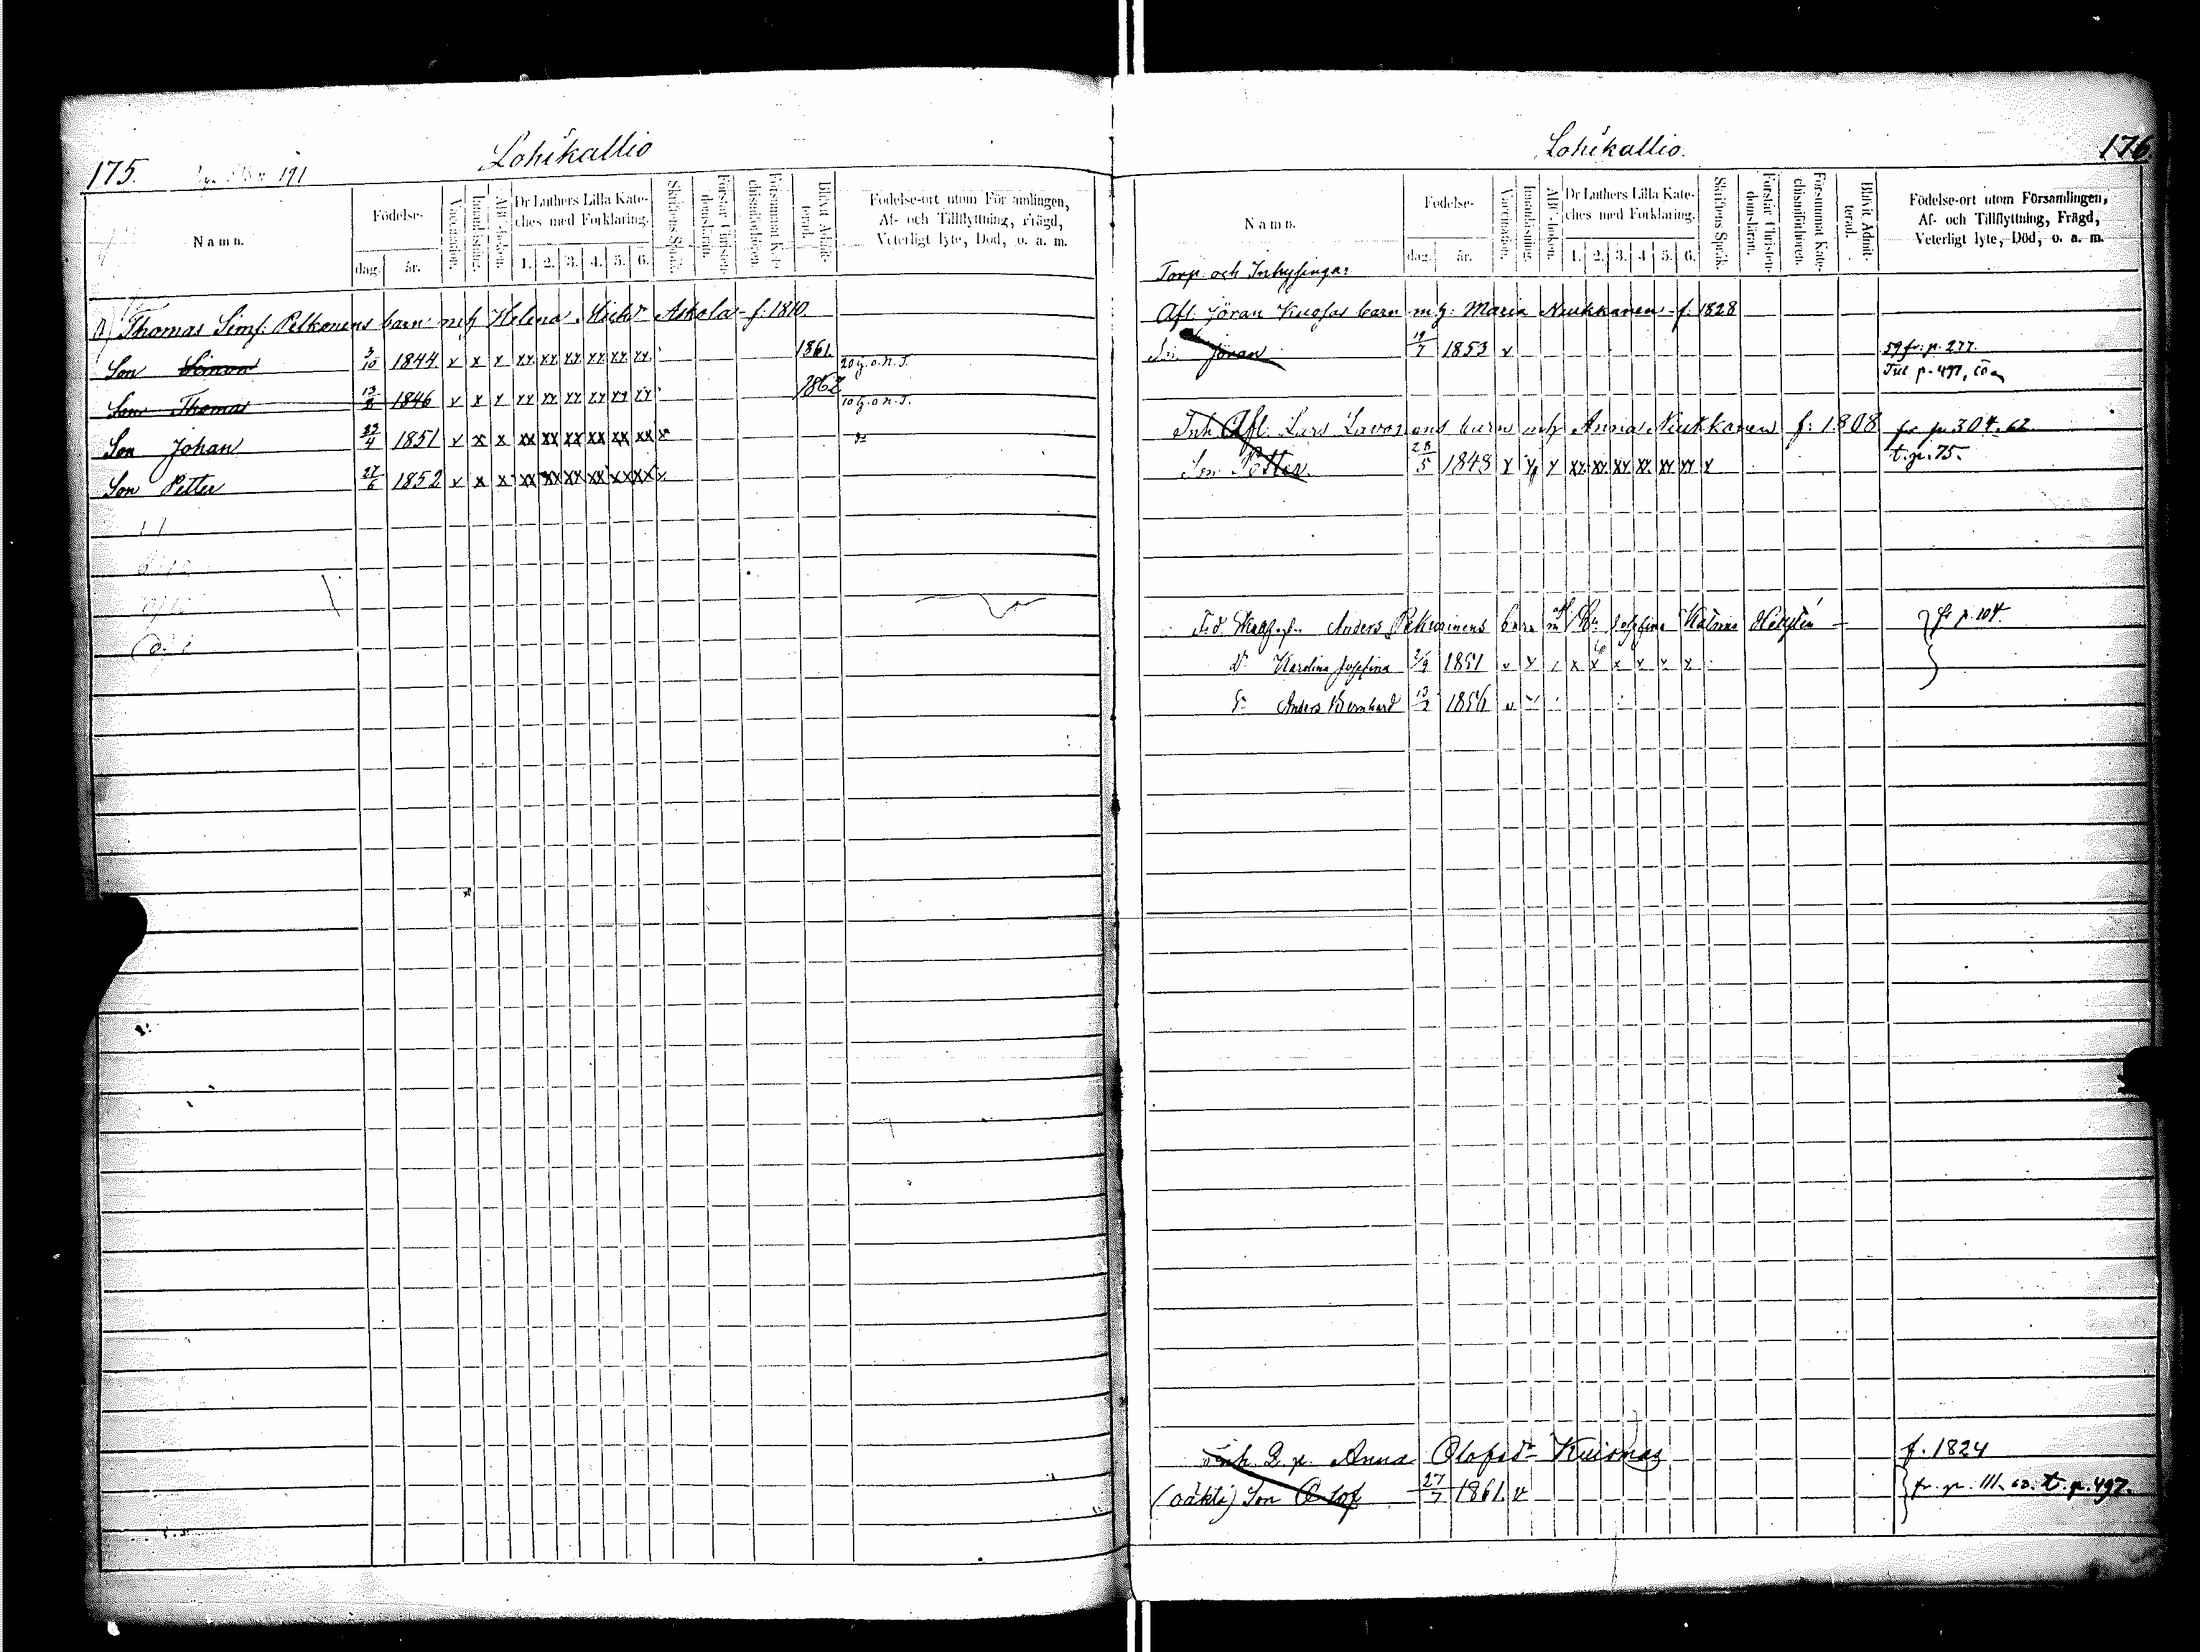 175.
Lohikallio
191
Namn.
Födelse-
dag.
år.
Vaccination.
Innanläsning.
ABC-boken.
Dr Luthers Lilla Kate-
ches med Förklaring.
1. 2. 3. 4. 5. 6.
Skriftens Språk.
Förstår Christen-
domsläran.
Försummat Kate-
chismiförhören.
Blifvit Admit-
terad.
Födelse-ort utom Församlingen,
Af- och Tillflyttning, Frägd,
Veterligt lyte, Död, o. a. m.
Thomas Simss: Pelkonens barn mh Helena Askola f. 1810
Son Simon 3/10 1844 v x x xx xx xx xx xx xx 1861 20 g. o. n. T.
Son Thomas 1846 v x x xx xx xx xx xx xx 1862 10 g. o. n. T.
Son Johan 22/4 1851 v x x xx xx xx xx xx xx x
Son Petter 27/6 1852 v x x xx xx xx xx xx xx v
Lohikallio.
176
Namn.
Födelse-
dag.
år.
Vaccination.
Innanläsning.
ABC-boken.
Dr Luthers Lilla Kate-
ches med Förklaring.
1. 2. 3. 4. 5. 6.
Skriftens Språk.
Förstår Christen-
domsläran.
Försummat Kate-
chismiförhören.
Blifvit Admit-
terad.
Födelse-ort utom Församlingen,
Af- och Tillflyttning, Frägd,
Veterligt lyte, Död, o. a. m.
Torp och Inhysinga:
Afl. Jöran barn m h. Maria Neukkanen f. 1828
Sn Jöran 1853 v 59 fr: p. 277.
Till p. 497,
Inh Afl. Lars barn mh Anna Neukkanen f: 1808 fr p. 304. 62.
Son Petter 28/5 1848 x x xx xx xx xx xx xx x t. p. 75.
F.d. Anders Pekurinens barn Josefina Katarina fr p. 104.
Dr Karolina Josefina 2/9 1851 v x x x x x x x
Sn Anders Bernhard 13/2 1856
Inh. Q. p. Anna Olofsdr Kuismas f. 1824
(oäkta) Son Olof 27/7 1861. v fr. p. 111. 62. t. p. 497.